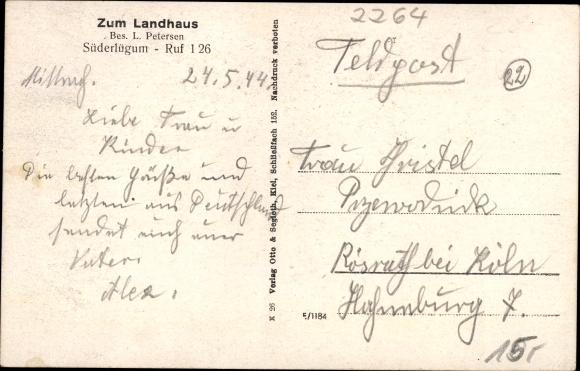 Zum Landhaus
Bes. L. Petersen
Süderlügum - Ruf 126
Mittwoch. 24.5.44.
Liebe Frau u
Kinder
Die besten Grüße und
letzten aus Deutschland
sendet euch euer
Vater.
Alex.
K 26 Verlag Otto & Segloth, Kiel, Schließfach 152. Nachdruck verboten
2264
Feldpost
22
Frau Kristel
Rösrath bei Köln
Hahnburg 7.
E/1184
15,-